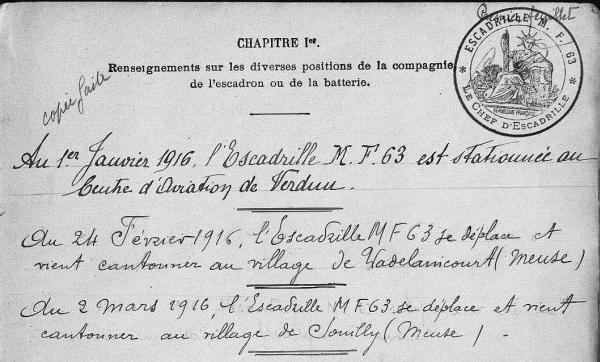 Premier feuillet
ESCADRILLE M. F. 63
LE CHEF D'ESCADRILLE
RÉPUBLIQUE FRANÇAISE
CHAPITRE Ier.
Renseignements sur les diverses positions de la compagnie,
de l'escadron ou de la batterie.
copie faite
Au 1er Janvier 1916, l'Escadrille M.F.63 est stationnée au
Centre d'Aviation de Verdun.
Au 24 Février 1916, l'Escadrille MF63 se déplace et
vient cantonner au village de Vadelaincourt (Meuse)
Au 2 mars 1916, l'Escadrille MF63 se déplace et vient
cantonner au village de Souilly (Meuse) .